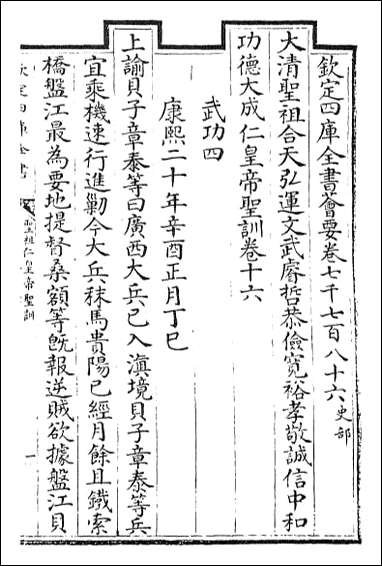 欽定四庫全書薈要卷七千七百八十六史部
大清聖祖合天弘運文武睿哲恭儉寛裕孝敬誠信中和
功德大成仁皇帝聖訓卷十六
武功四
康熙二十年辛酉正月丁巳
上諭貝子章泰等曰廣西大兵已入滇境貝子章泰等兵
宜乘機速行進勦今大兵秣馬貴陽已經月餘且鐵索
橋盤江最為要地提督桑額等既報逆賊欲據盤江貝
欽定四庫全書
聖祖仁皇帝聖訓
一